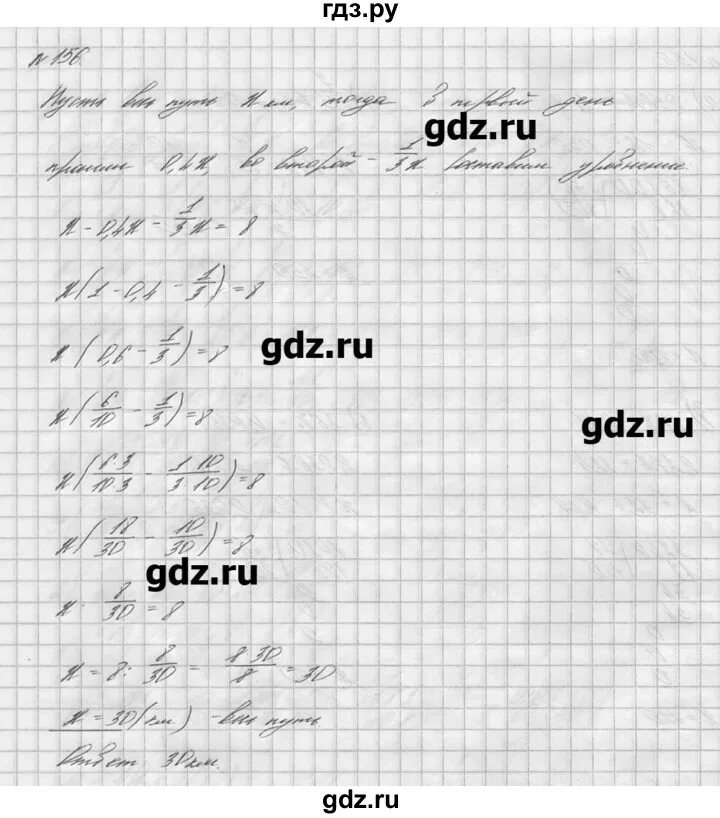 гдз.ру
№ 156.
Пусть весь путь x км, тогда в первый день
gdz.ru
прошли 0,4x, во второй - 1/3 x составим уравнение:
x - 0,4x - 1/3 x = 8
x(1 - 0,4 - 1/3) = 8
x(0,6 - 1/3) = 8
gdz.ru
x(6/10 - 1/3) = 8
gdz.ru
x(6·3/10·3 - 1·10/3·10) = 8
x(18/30 - 10/30) = 8
gdz.ru
x · 8/30 = 8
x = 8 : 8/30 = 8·30/8 = 30
x = 30 (км) - весь путь
Ответ: 30 км.
gdz.ru